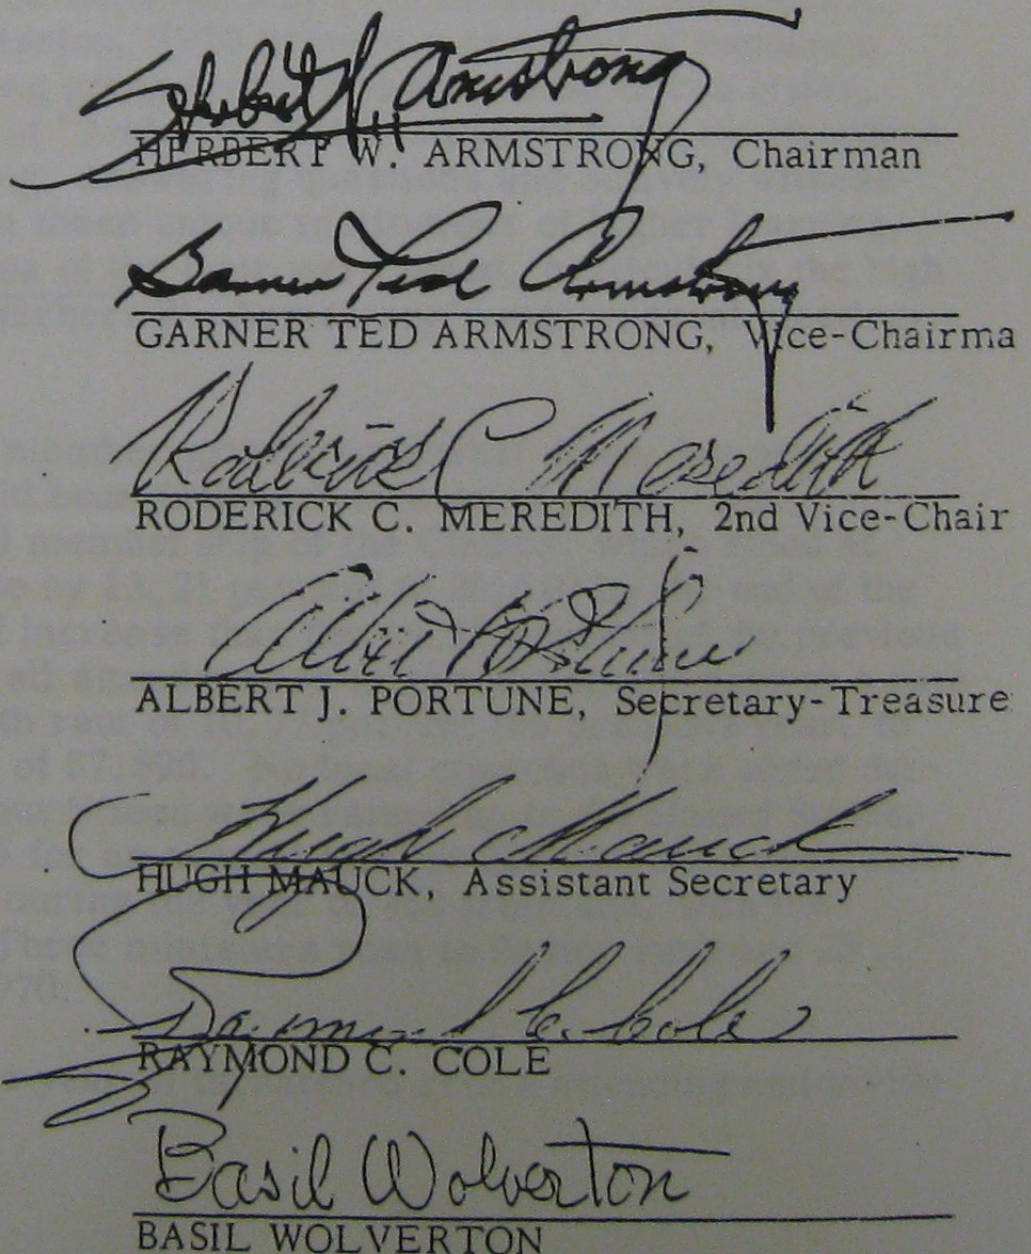 Herbert W. Armstrong
HERBERT W. ARMSTRONG, Chairman
Garner Ted Armstrong
GARNER TED ARMSTRONG, Vice-Chairma
Roderick C Meredith
RODERICK C. MEREDITH, 2nd Vice-Chair
Albert J Portune
ALBERT J. PORTUNE, Secretary-Treasure
Hugh Mauck
HUGH MAUCK, Assistant Secretary
Raymond C. Cole
RAYMOND C. COLE
Basil Wolverton
BASIL WOLVERTON